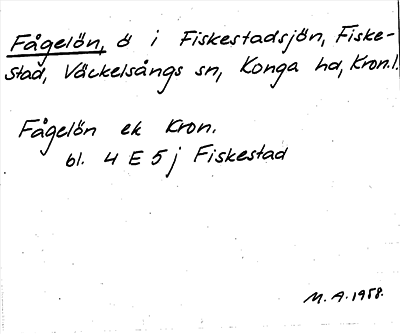 Fågelön, ö i Fiskestadsjön, Fiske-
stad, Väckelsångs sn, Konga hd, Kron.l.
Fågelön ek Kron.
bl. 4 E 5 j Fiskestad
M. A. 1958.